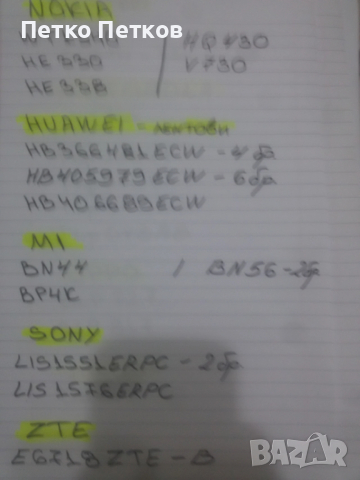 NOKIA
Петко Петков
HQ430
HE330 V730
HE338
HUAWEI - лентови
HB366481ECW - 4бр
HB405979ECW - 6бр
HB406689ECW
MI
BN44 / BN56 - 2бр
BP4K
SONY
LIS1551ERPC - 2бр
LIS1576ERPC
ZTE
E6719 ZTE - B
BAZAR